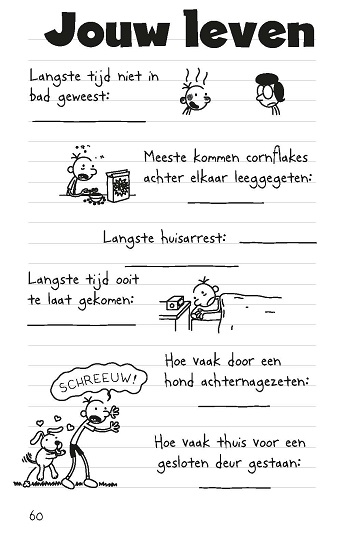 Jouw leven
Langste tijd niet in
bad geweest:
Meeste kommen cornflakes
achter elkaar leeggegeten:
Langste huisarrest:
Langste tijd ooit
te laat gekomen:
Hoe vaak door een
hond achternagezeten:
SCHREEUW!
Hoe vaak thuis voor een
gesloten deur gestaan:
60